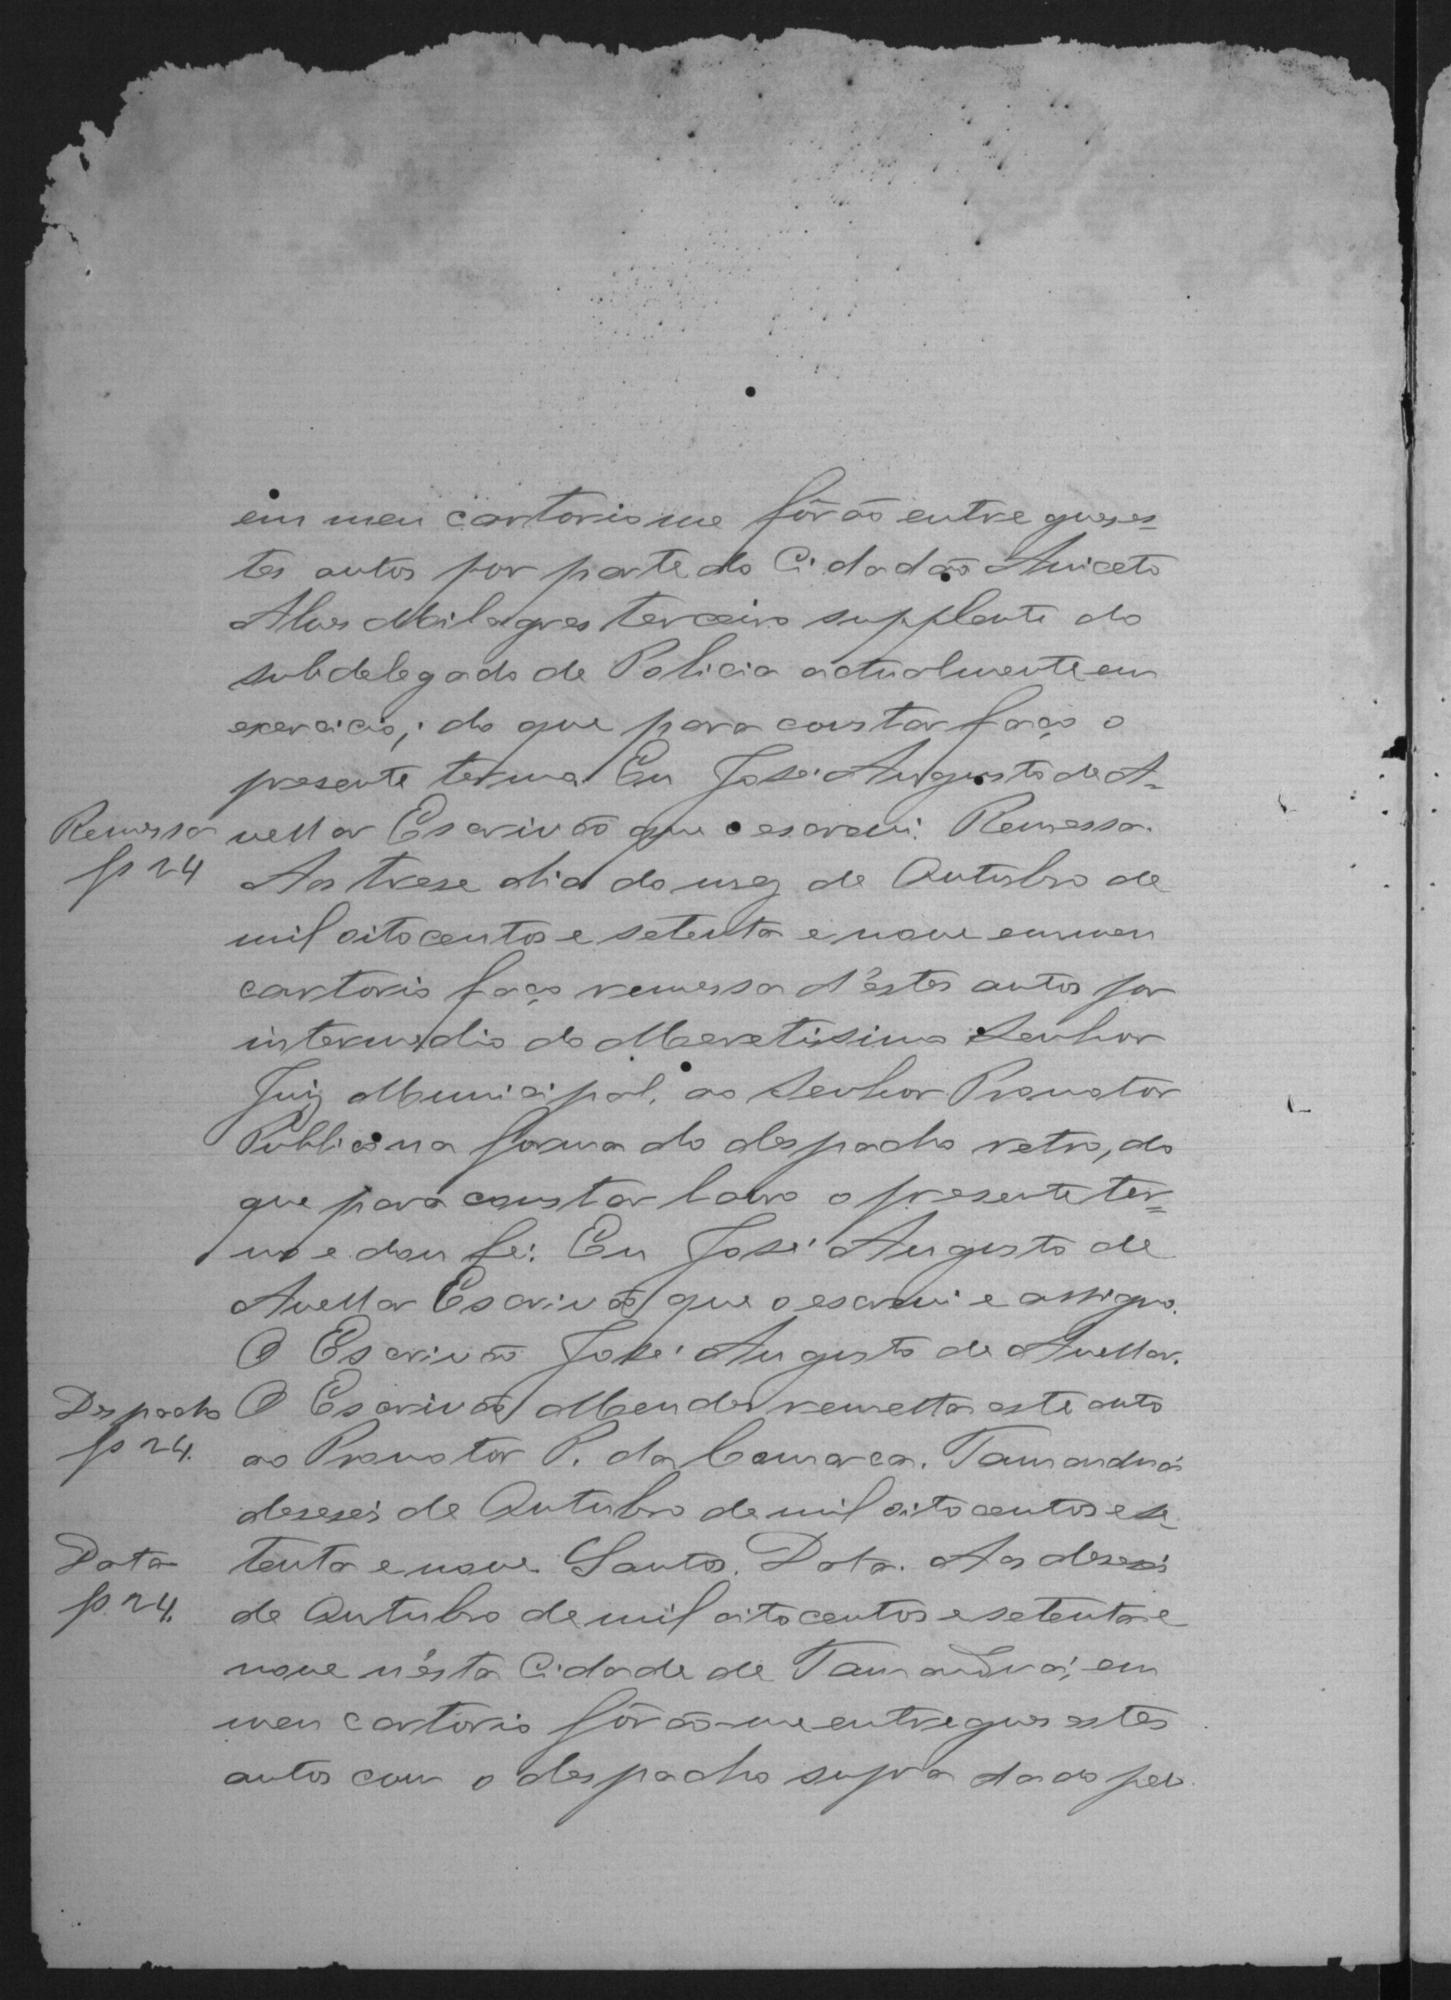 em meu cartorio me fôrão entregues es=
tes autos por parte do Cidadão Aniceto
Alves Milagres terceiro supplente do
subdelegado de Policia actualmente em
exercicio; do que para constar faço o
presente termo. Eu José Augusto de A=
Remessa
f 24
vellar Escrivão que o escrevi. Remessa.
Aos trese dia do mez de Outubro de
mil oitocentos e setenta e nove em meu
cartorio faço remessa d'estes autos por
intermedio do Meretissimo Senhor
Juiz Municipal, ao Senhor Promotor
Publico na forma do despacho retro, do
que para constar lavro o presente ter=
mo e dou fé. Eu José Augusto de
Avellar Escrivão que o escrevi e assigno.
O Escrivão José Augusto de Avellar.
Despacho
f 24.
O Escrivão Mendes remetta este auto
ao Promotor P. da Comarca. Tamanduá
deseseis de Outubro de mil oitocentos e se=
Data
f. 24.
tenta e nove. Santos. Data. Aos deseseis
de Outubro de mil oitocentos e setenta e
nove n'esta Cidade de Tamanduá, em
meu cartorio fôrão-me entregues estes
autos com o despacho supra dado pelo